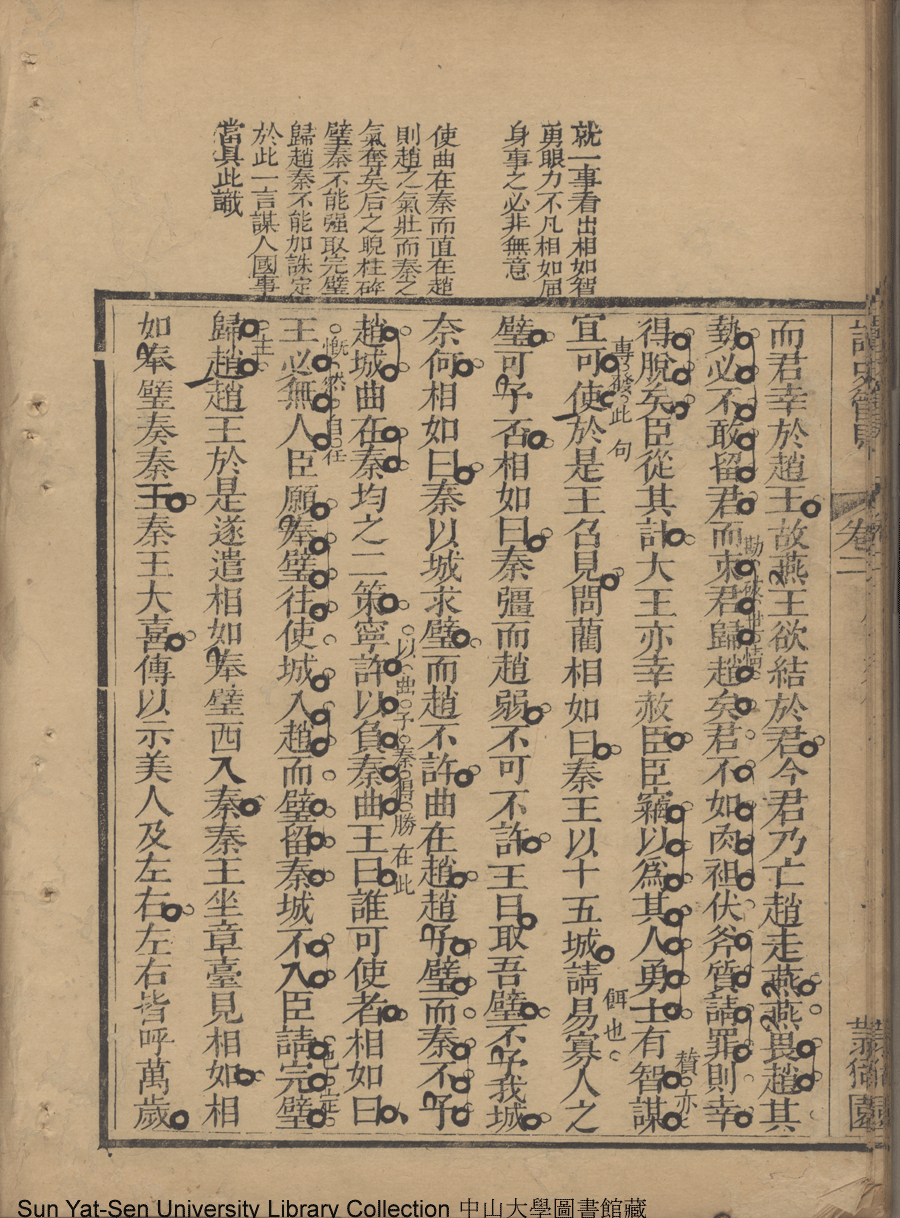 就一事看出相如智
勇眼力不凡相如屈
身事之必非無意
使曲在秦而直在趙
則趙之氣壯而秦之
氣奪矣后之睨柱碎
璧秦不能强取完璧
歸趙秦不能加誅定
於此一言謀人國事
當具此識
卷二
而君幸於趙王故燕王欲結於君今君乃亡趙走燕燕畏趙其
勢必不敢留君而束君歸趙矣君不如肉袒伏斧質請罪則幸
勘破世情
得脫矣臣從其計大王亦幸赦臣臣竊以為其人勇士有智謀
贊亦
專發此句
宜可使於是王召見問藺相如曰秦王以十五城請易寡人之
餌也
璧可予否相如曰秦彊而趙弱不可不許王曰取吾璧不予我城
奈何相如曰秦以城求璧而趙不許曲在趙趙予璧而秦不予
以曲予秦得勝在此
趙城曲在秦均之二策寧許以負秦曲王曰誰可使者相如曰
慨然自任
王必無人臣願奉璧往使城入趙而璧留秦城不入臣請完璧
也定
主
歸趙趙王於是遂遣相如奉璧西入秦秦王坐章臺見相如相
如奉璧奏秦王秦王大喜傳以示美人及左右左右皆呼萬歲
Sun Yat-Sen University Library Collection 中山大學圖書館藏